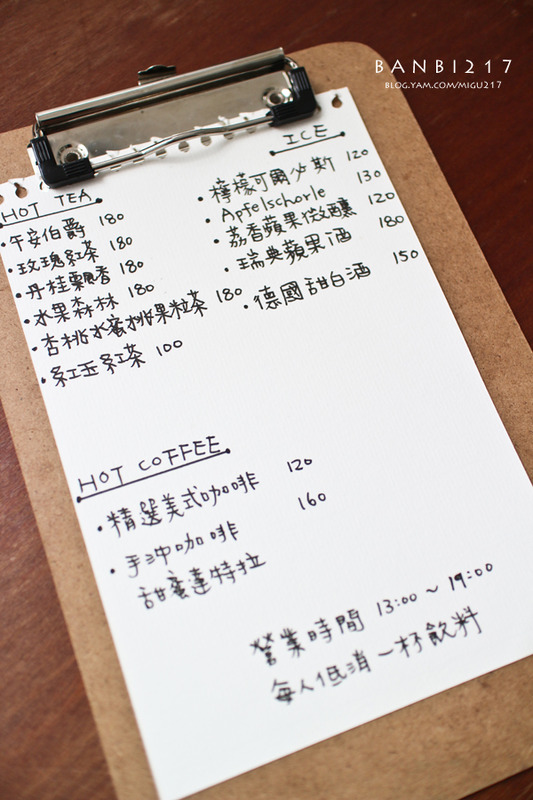 BANBI217
BLOG.YAM.COM/MIGU217
HOT TEA
•午安伯爵 180
•玫瑰紅茶 180
•丹桂飄香 180
•水果森林 180
•杏桃水蜜桃果粒茶 180
•紅玉紅茶 100
ICE
•檸檬可爾必斯 120
•Apfelschorle 130
•荔香蘋果微醺 120
•瑞典蘋果酒 180
•德國甜白酒 150
HOT COFFEE
•精選美式咖啡 120
•手沖咖啡 160
甜蜜達特拉
營業時間 13:00~19:00
每人低消一杯飲料